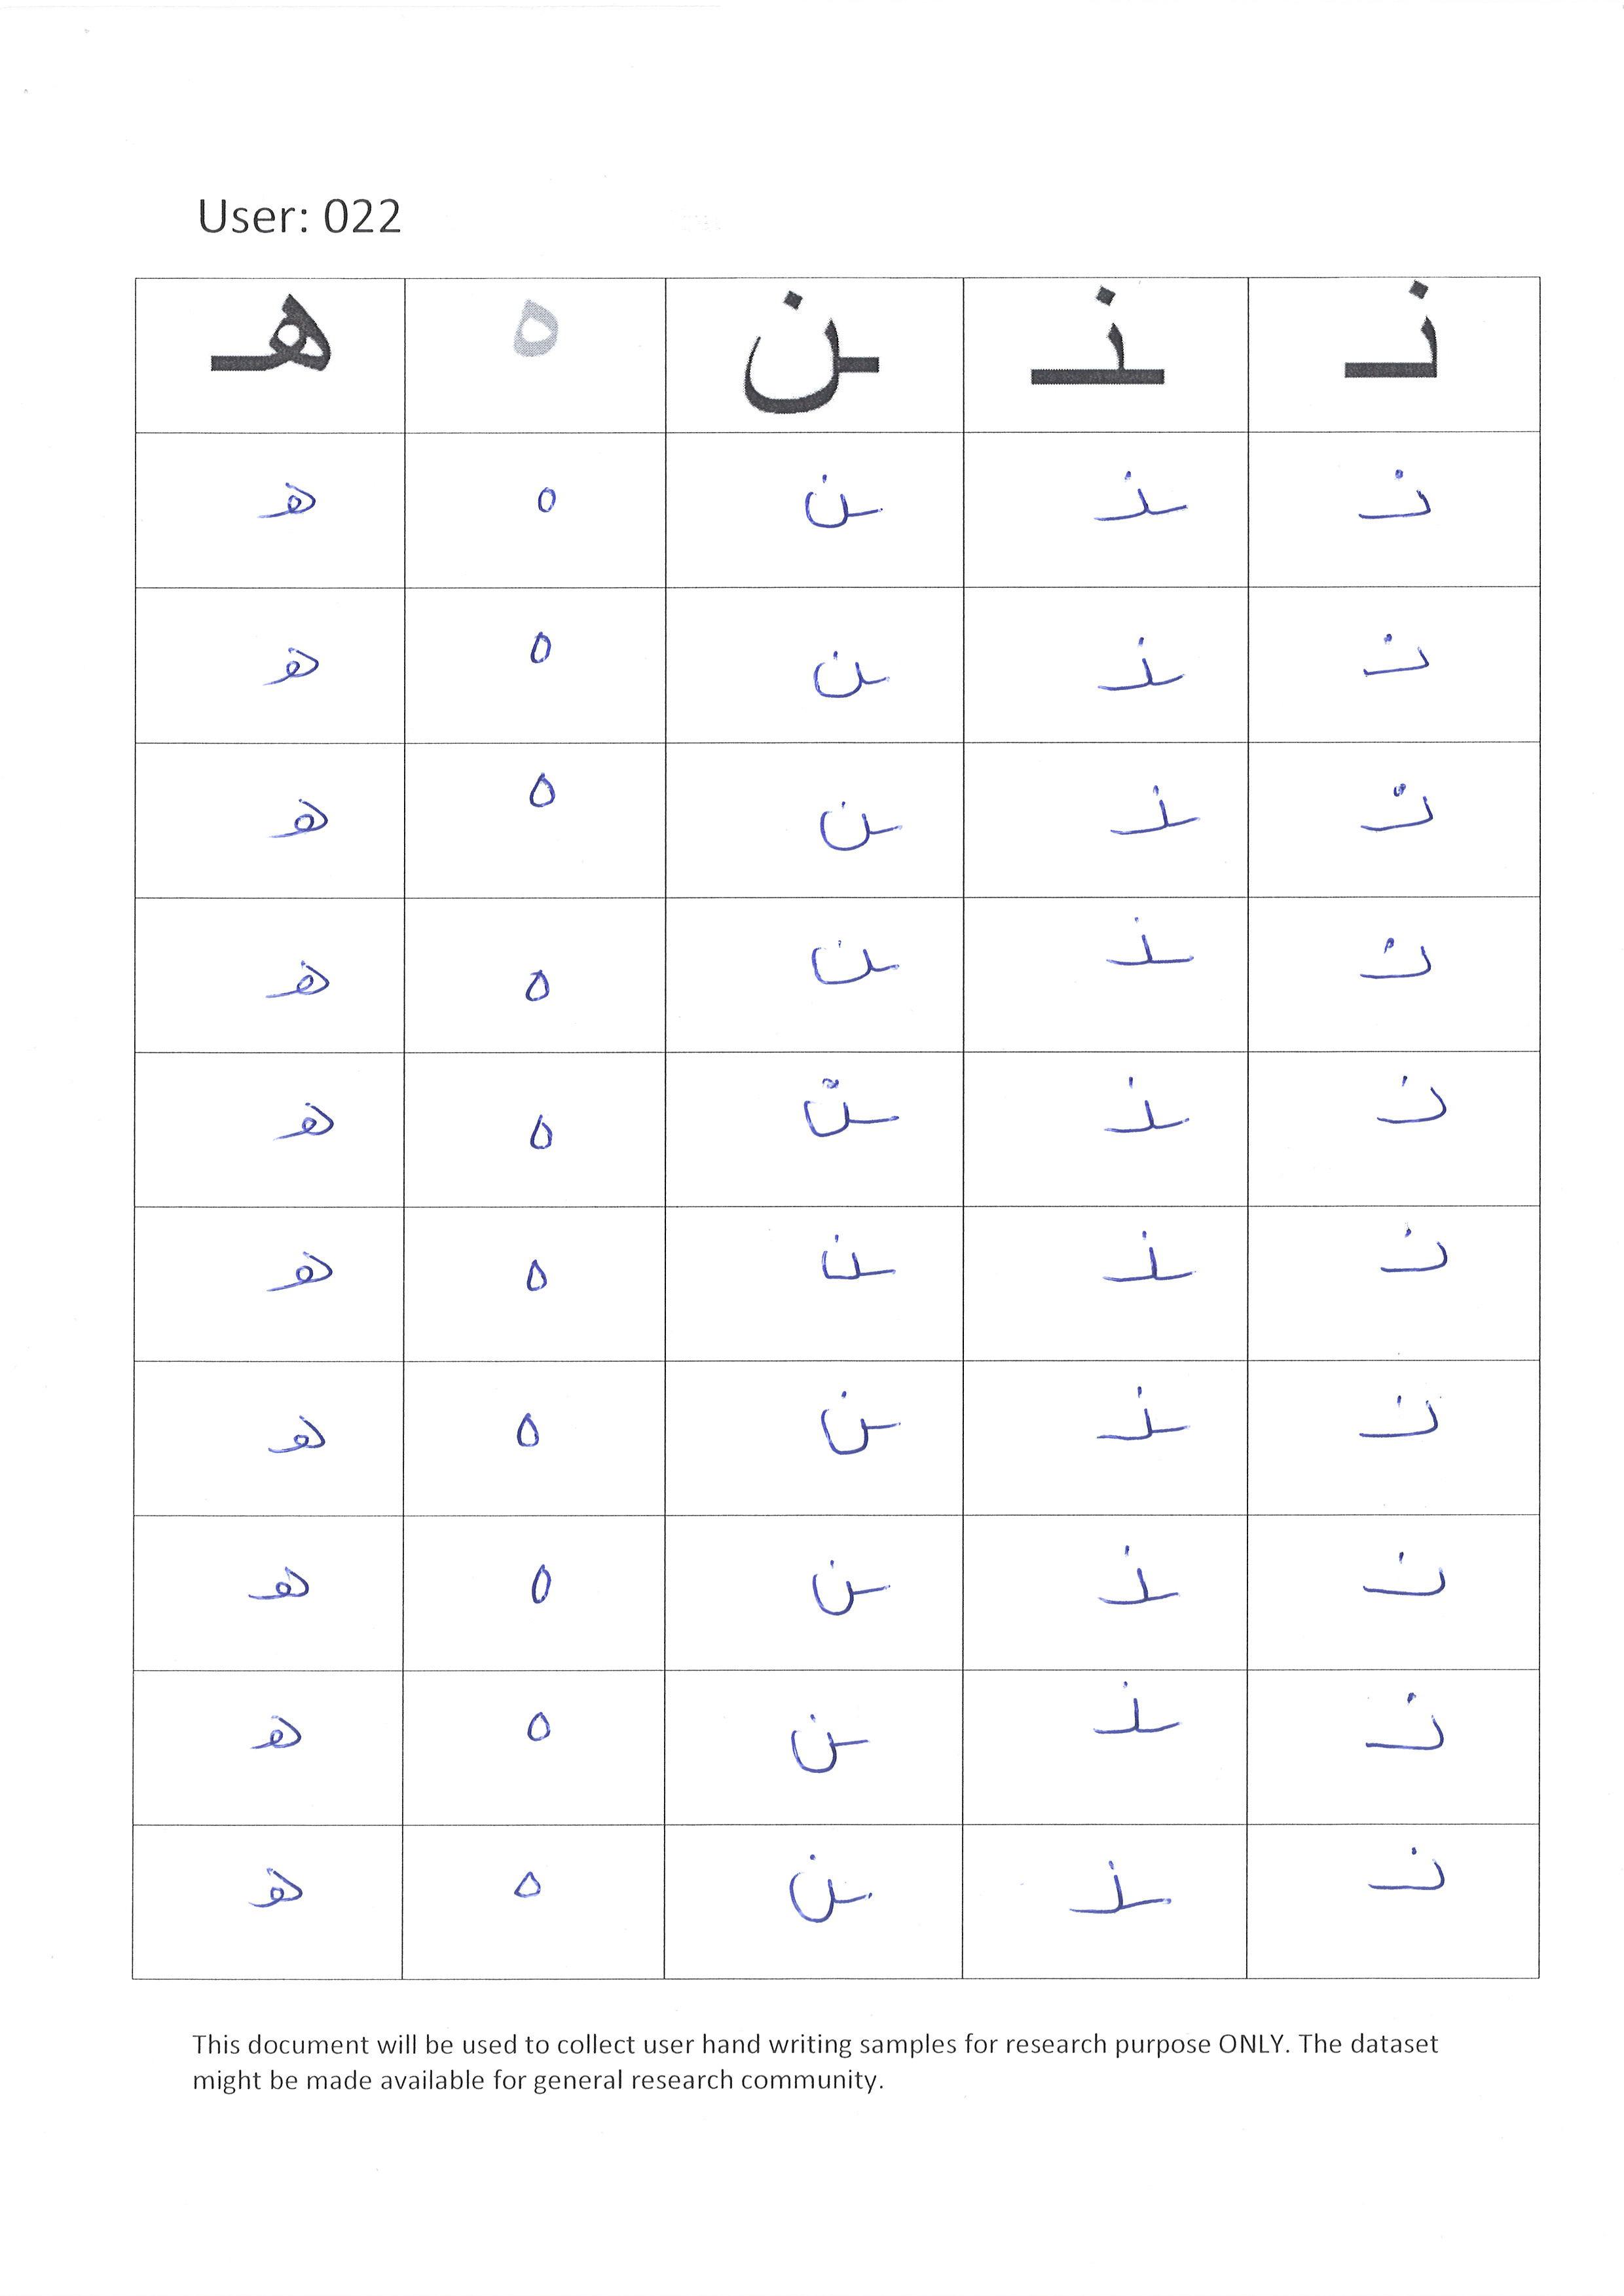 User: 022
نـ ـنـ ـن ه هـ
نـ ـنـ ـن ه هـ
نـ ـنـ ـن ه هـ
نـ ـنـ ـن ه هـ
نـ ـنـ ـن ه هـ
نـ ـنـ ـن ه هـ
نـ ـنـ ـن ه هـ
نـ ـنـ ـن ه هـ
نـ ـنـ ـن ه هـ
نـ ـنـ ـن ه هـ
نـ ـنـ ـن ه هـ
This document will be used to collect user hand writing samples for research purpose ONLY. The dataset
might be made available for general research community.